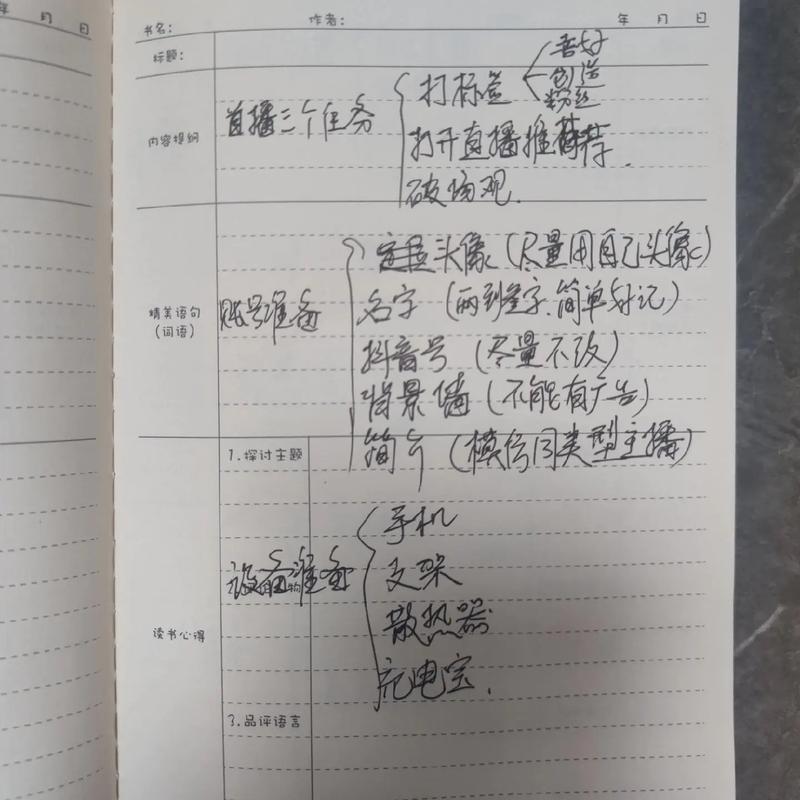 年 月 日
书名: 作者: 年 月 日
标题:
喜好
打标签 创造
粉丝
内容提纲 直播三个任务
打开直播推荐荐.
破场观.
头像 (尽量用自己头像)
名字 (两到 字.简单好记)
精美语句
(词语)
账号准备
抖音号 (尽量不改)
背景墙 (不能有广告)
简介 (模仿同类型主播)
1.探讨主题
手机
设备准备
支架
读书心得
散热器
充电宝.
3.品评语言